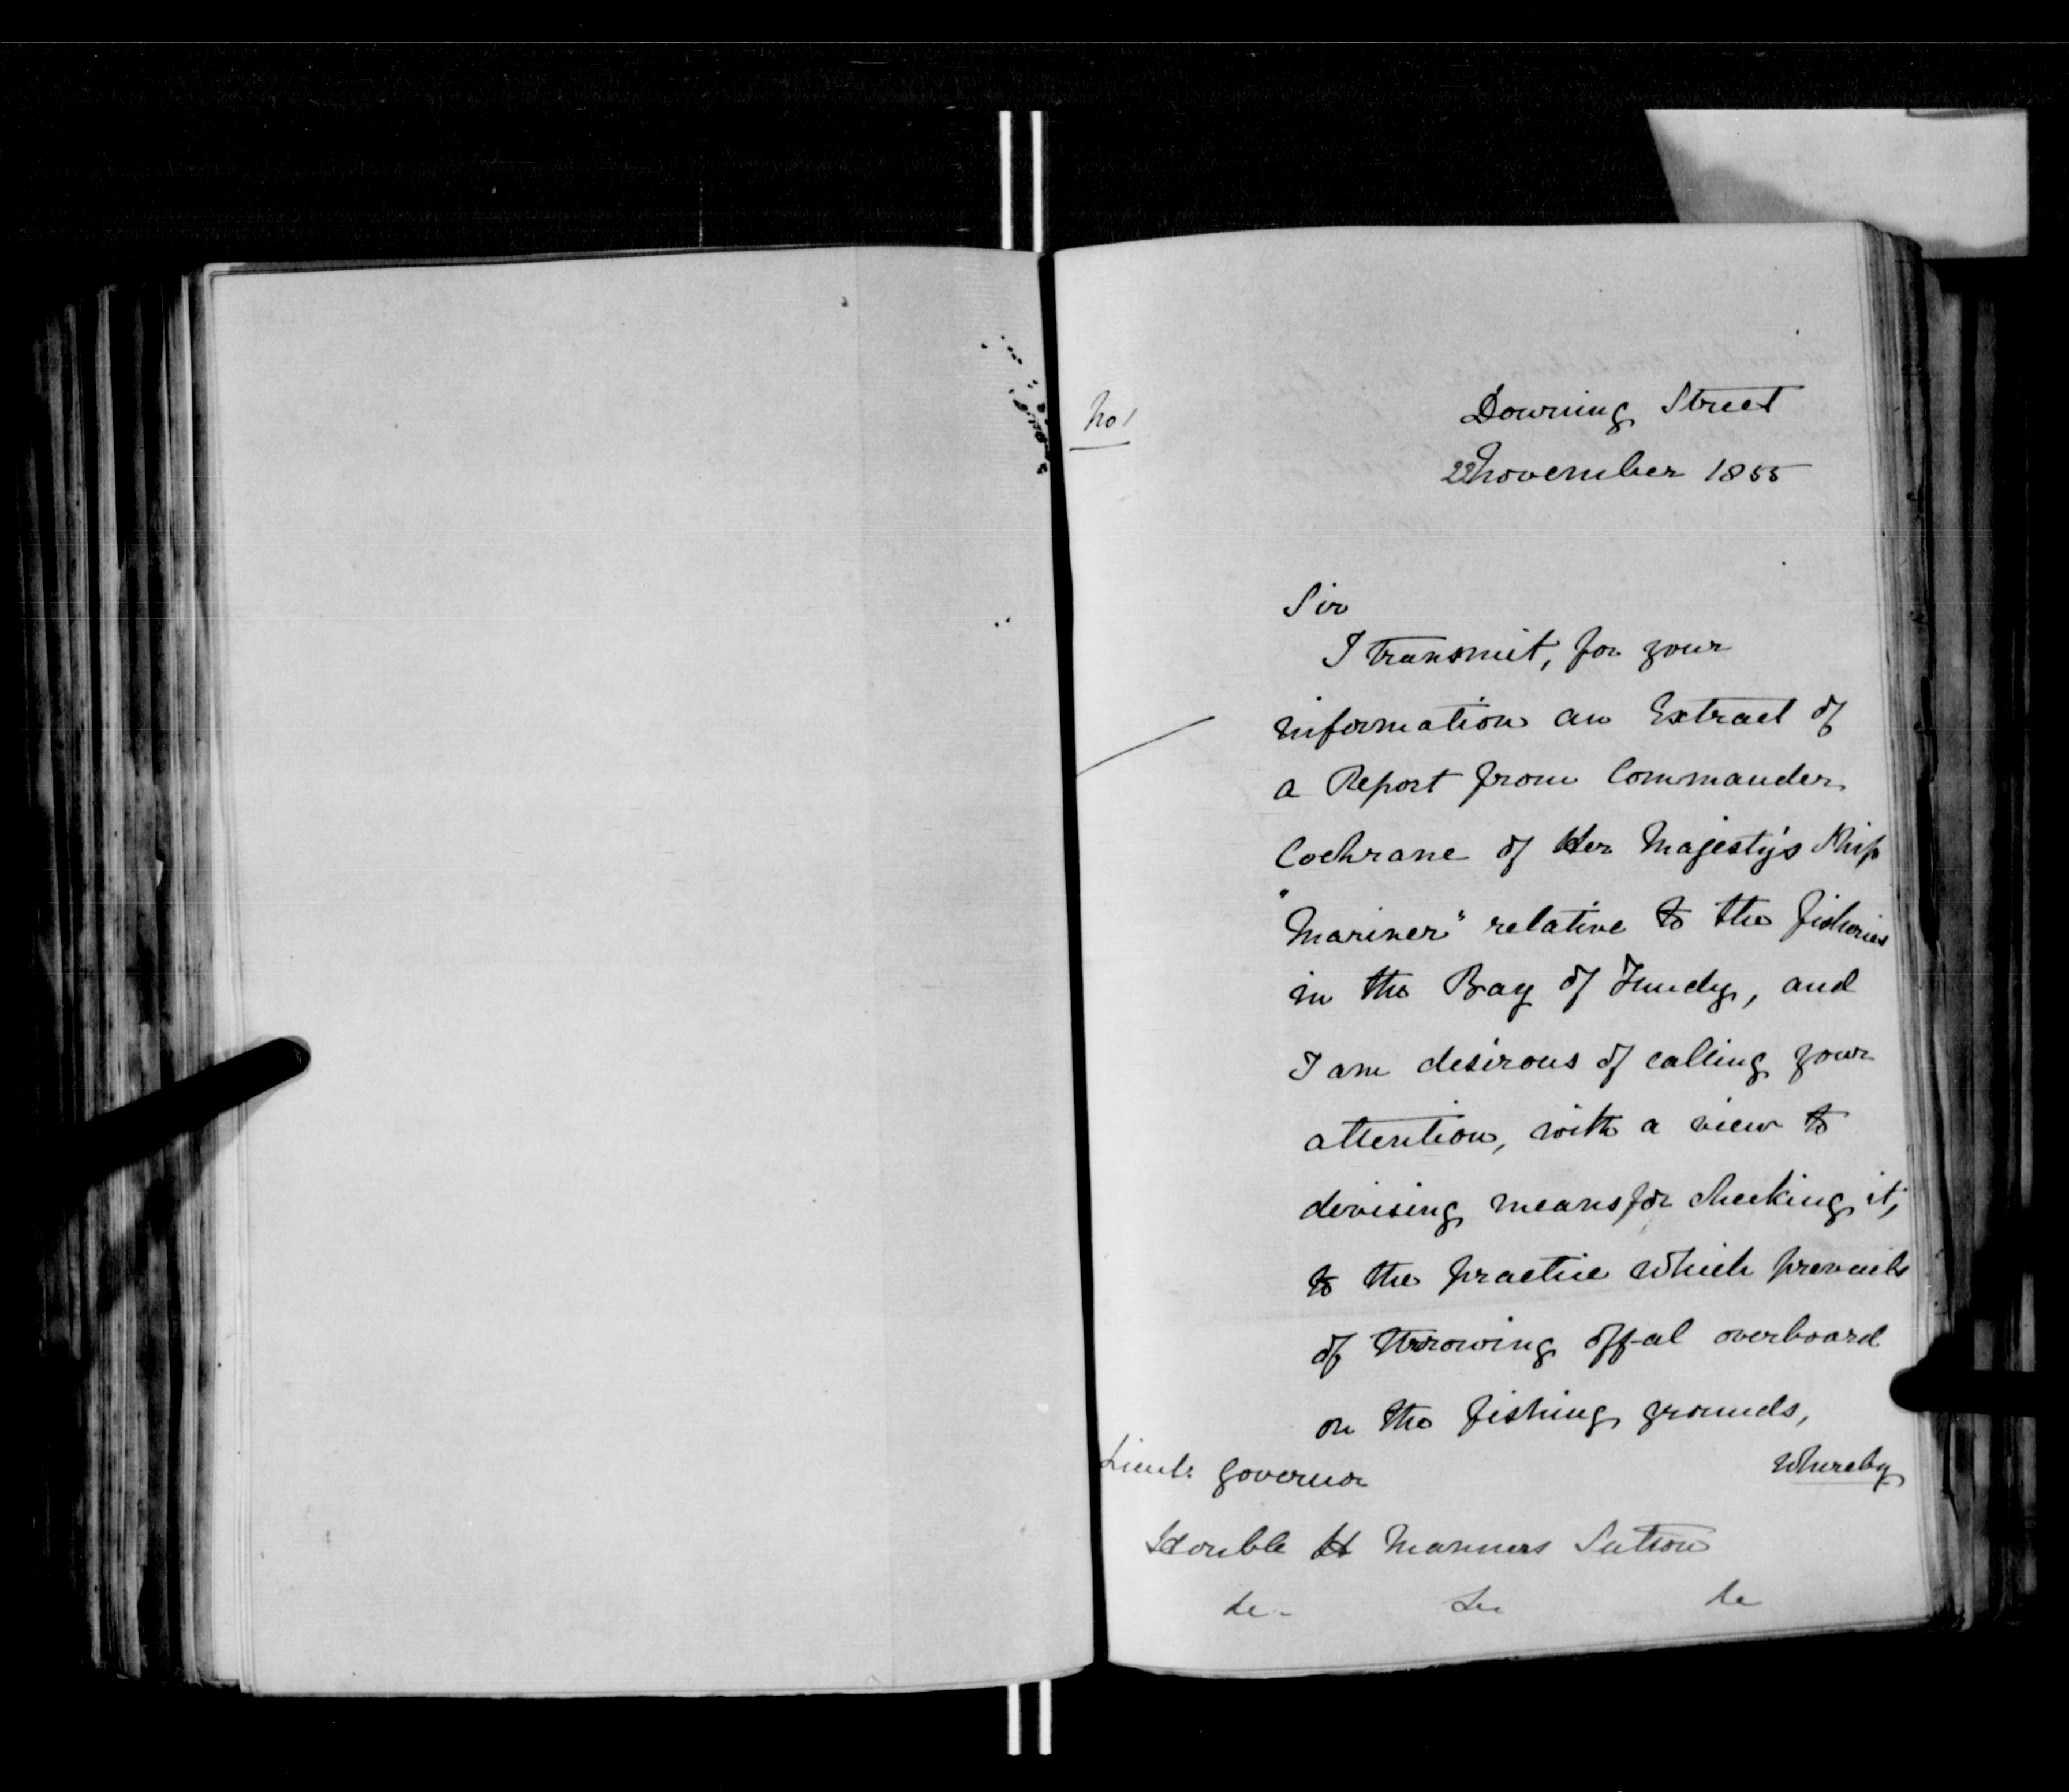 No 1
Downing Street
22 November 1855
Sir
I transmit, for your
information an Extract of
a Report from Commander
Cochrane of Her Majesty's Ship
"Mariner" relative to the fisheries
in the Bay of Fundy, and
I am desirous of calling your
attention, with a view to
devising means for checking it,
to the practice which prevails
of throwing off-al overboard
on the fishing grounds,
whereby
Lieut: Governor
Honble H Manners Sutton
&c - &c &c